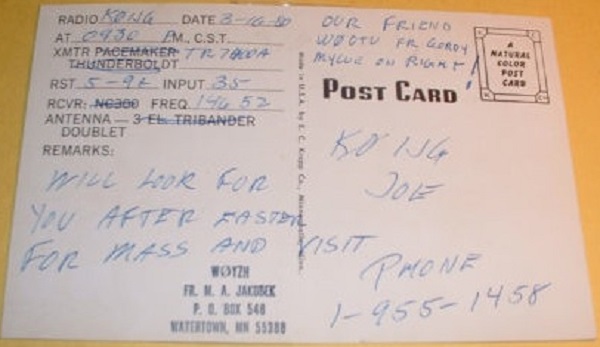 RADIO KØNG DATE 3-16-80
AT 0430 PM., C.S.T.
XMTR PACEMAKER TR7400A
THUNDERBOLDT
RST 5-9+ INPUT 35
RCVR: NC300 FREQ. 146 52
ANTENNA — 3 EL. TRIBANDER
DOUBLET
REMARKS:
WILL LOOK FOR
YOU AFTER EASTER
FOR MASS AND VISIT
WØYZH
FR. M. A. JAKUBEK
P. O. BOX 546
WATERTOWN, MN 55388
Made in U.S.A. by E. C. Kropp Co.,
OUR FRIEND
WØOTU FR GORDY
ON RIGHT
A
NATURAL
COLOR
POST
CARD
POST CARD
KØNG
JOE
PHONE
1-955-1458